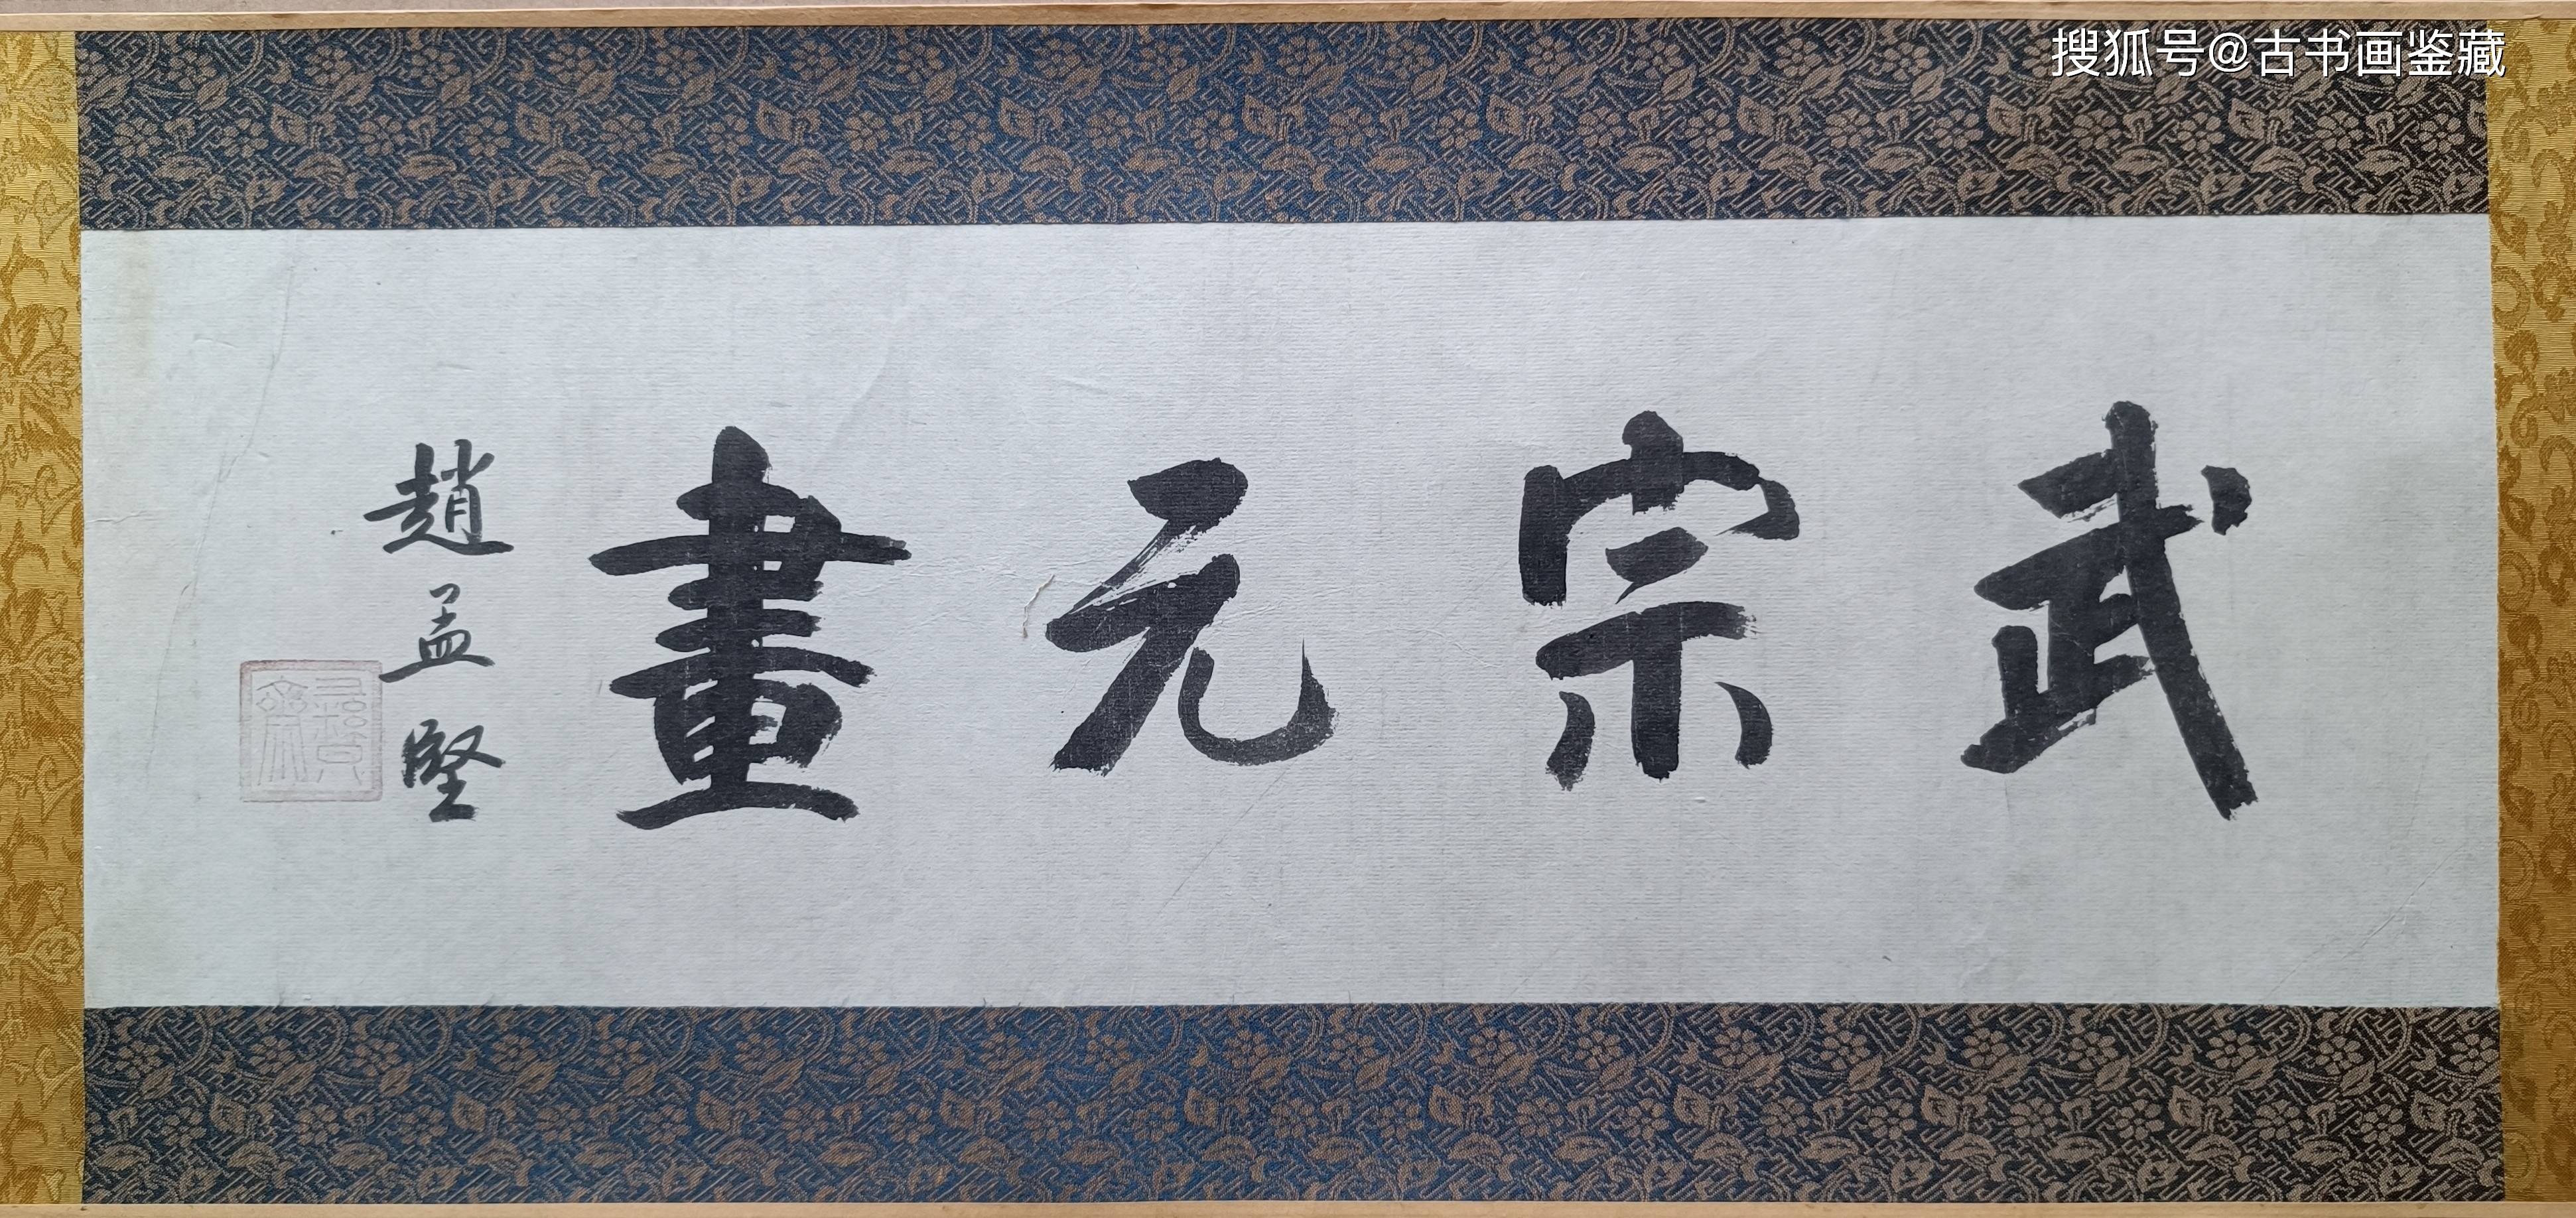 搜狐号@古书画鉴藏
武宗元畫
趙孟堅
彝齋